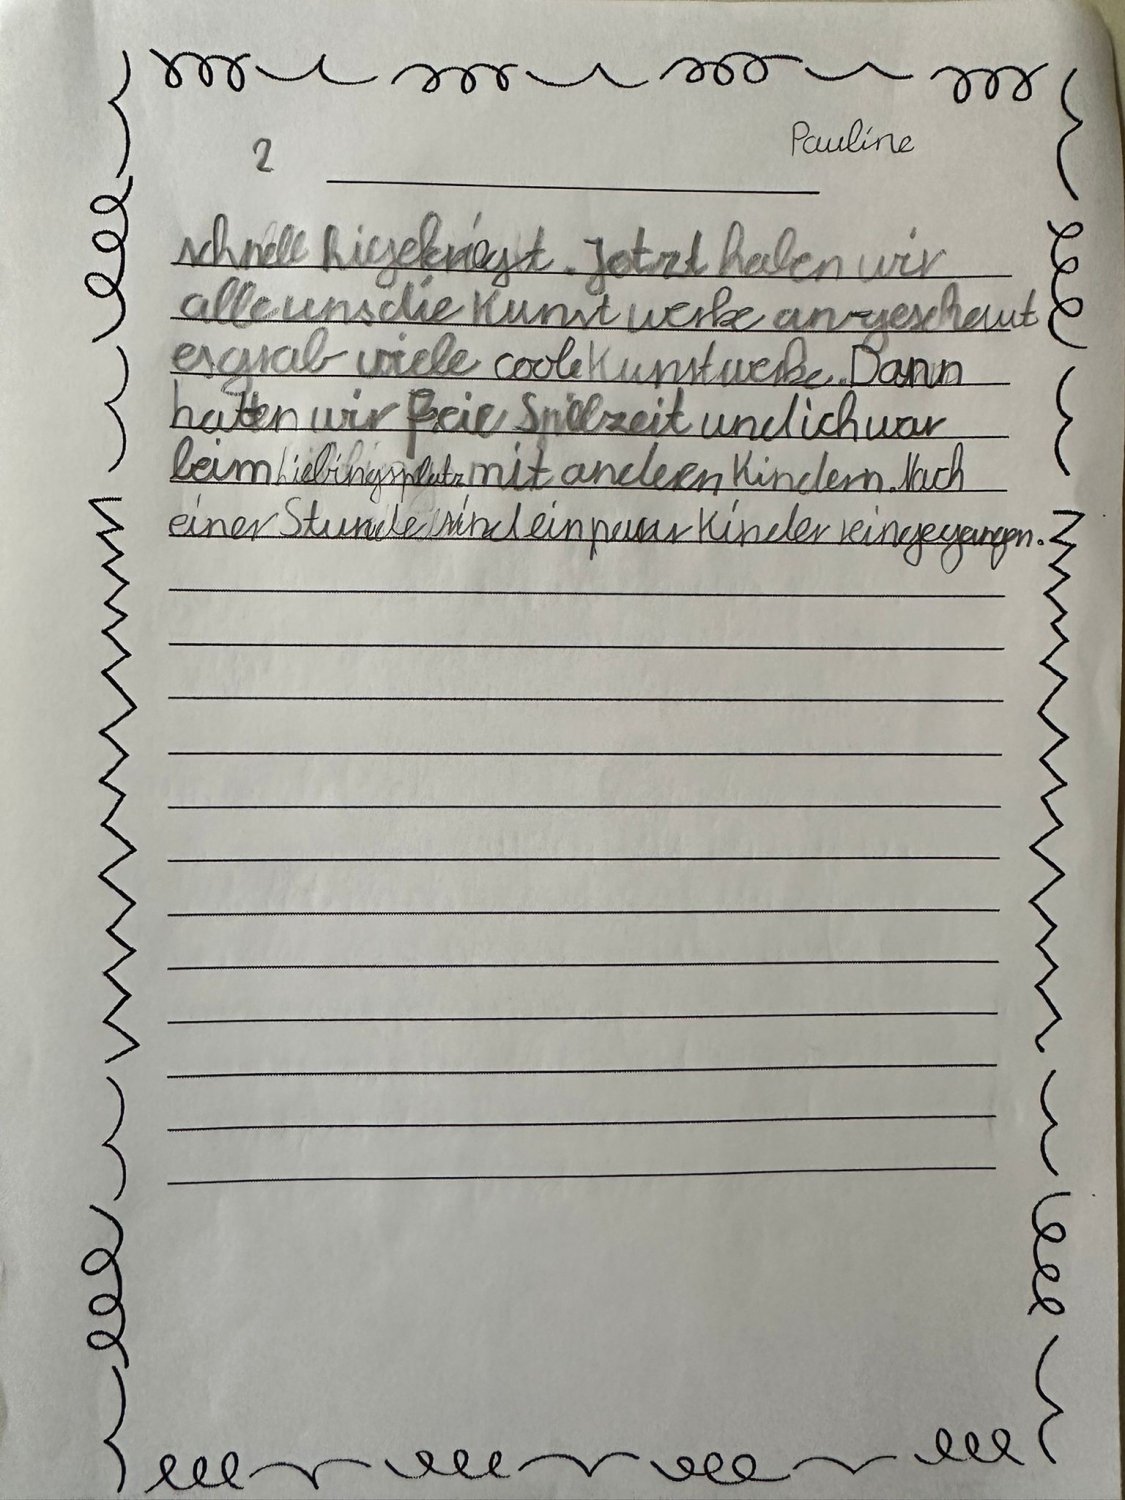 2
Pauline
schnell higekriegt. Jetzt haben wir
alle uns die Kunst werke an-geschaut
es grab viele coole Kunstwerke. Dann
hatten wir freie Spilzeit und ich war
beim Lieblingsplatz mit andern Kindern. Nach
einer Stunde sind ein paar Kinder reingegangen.